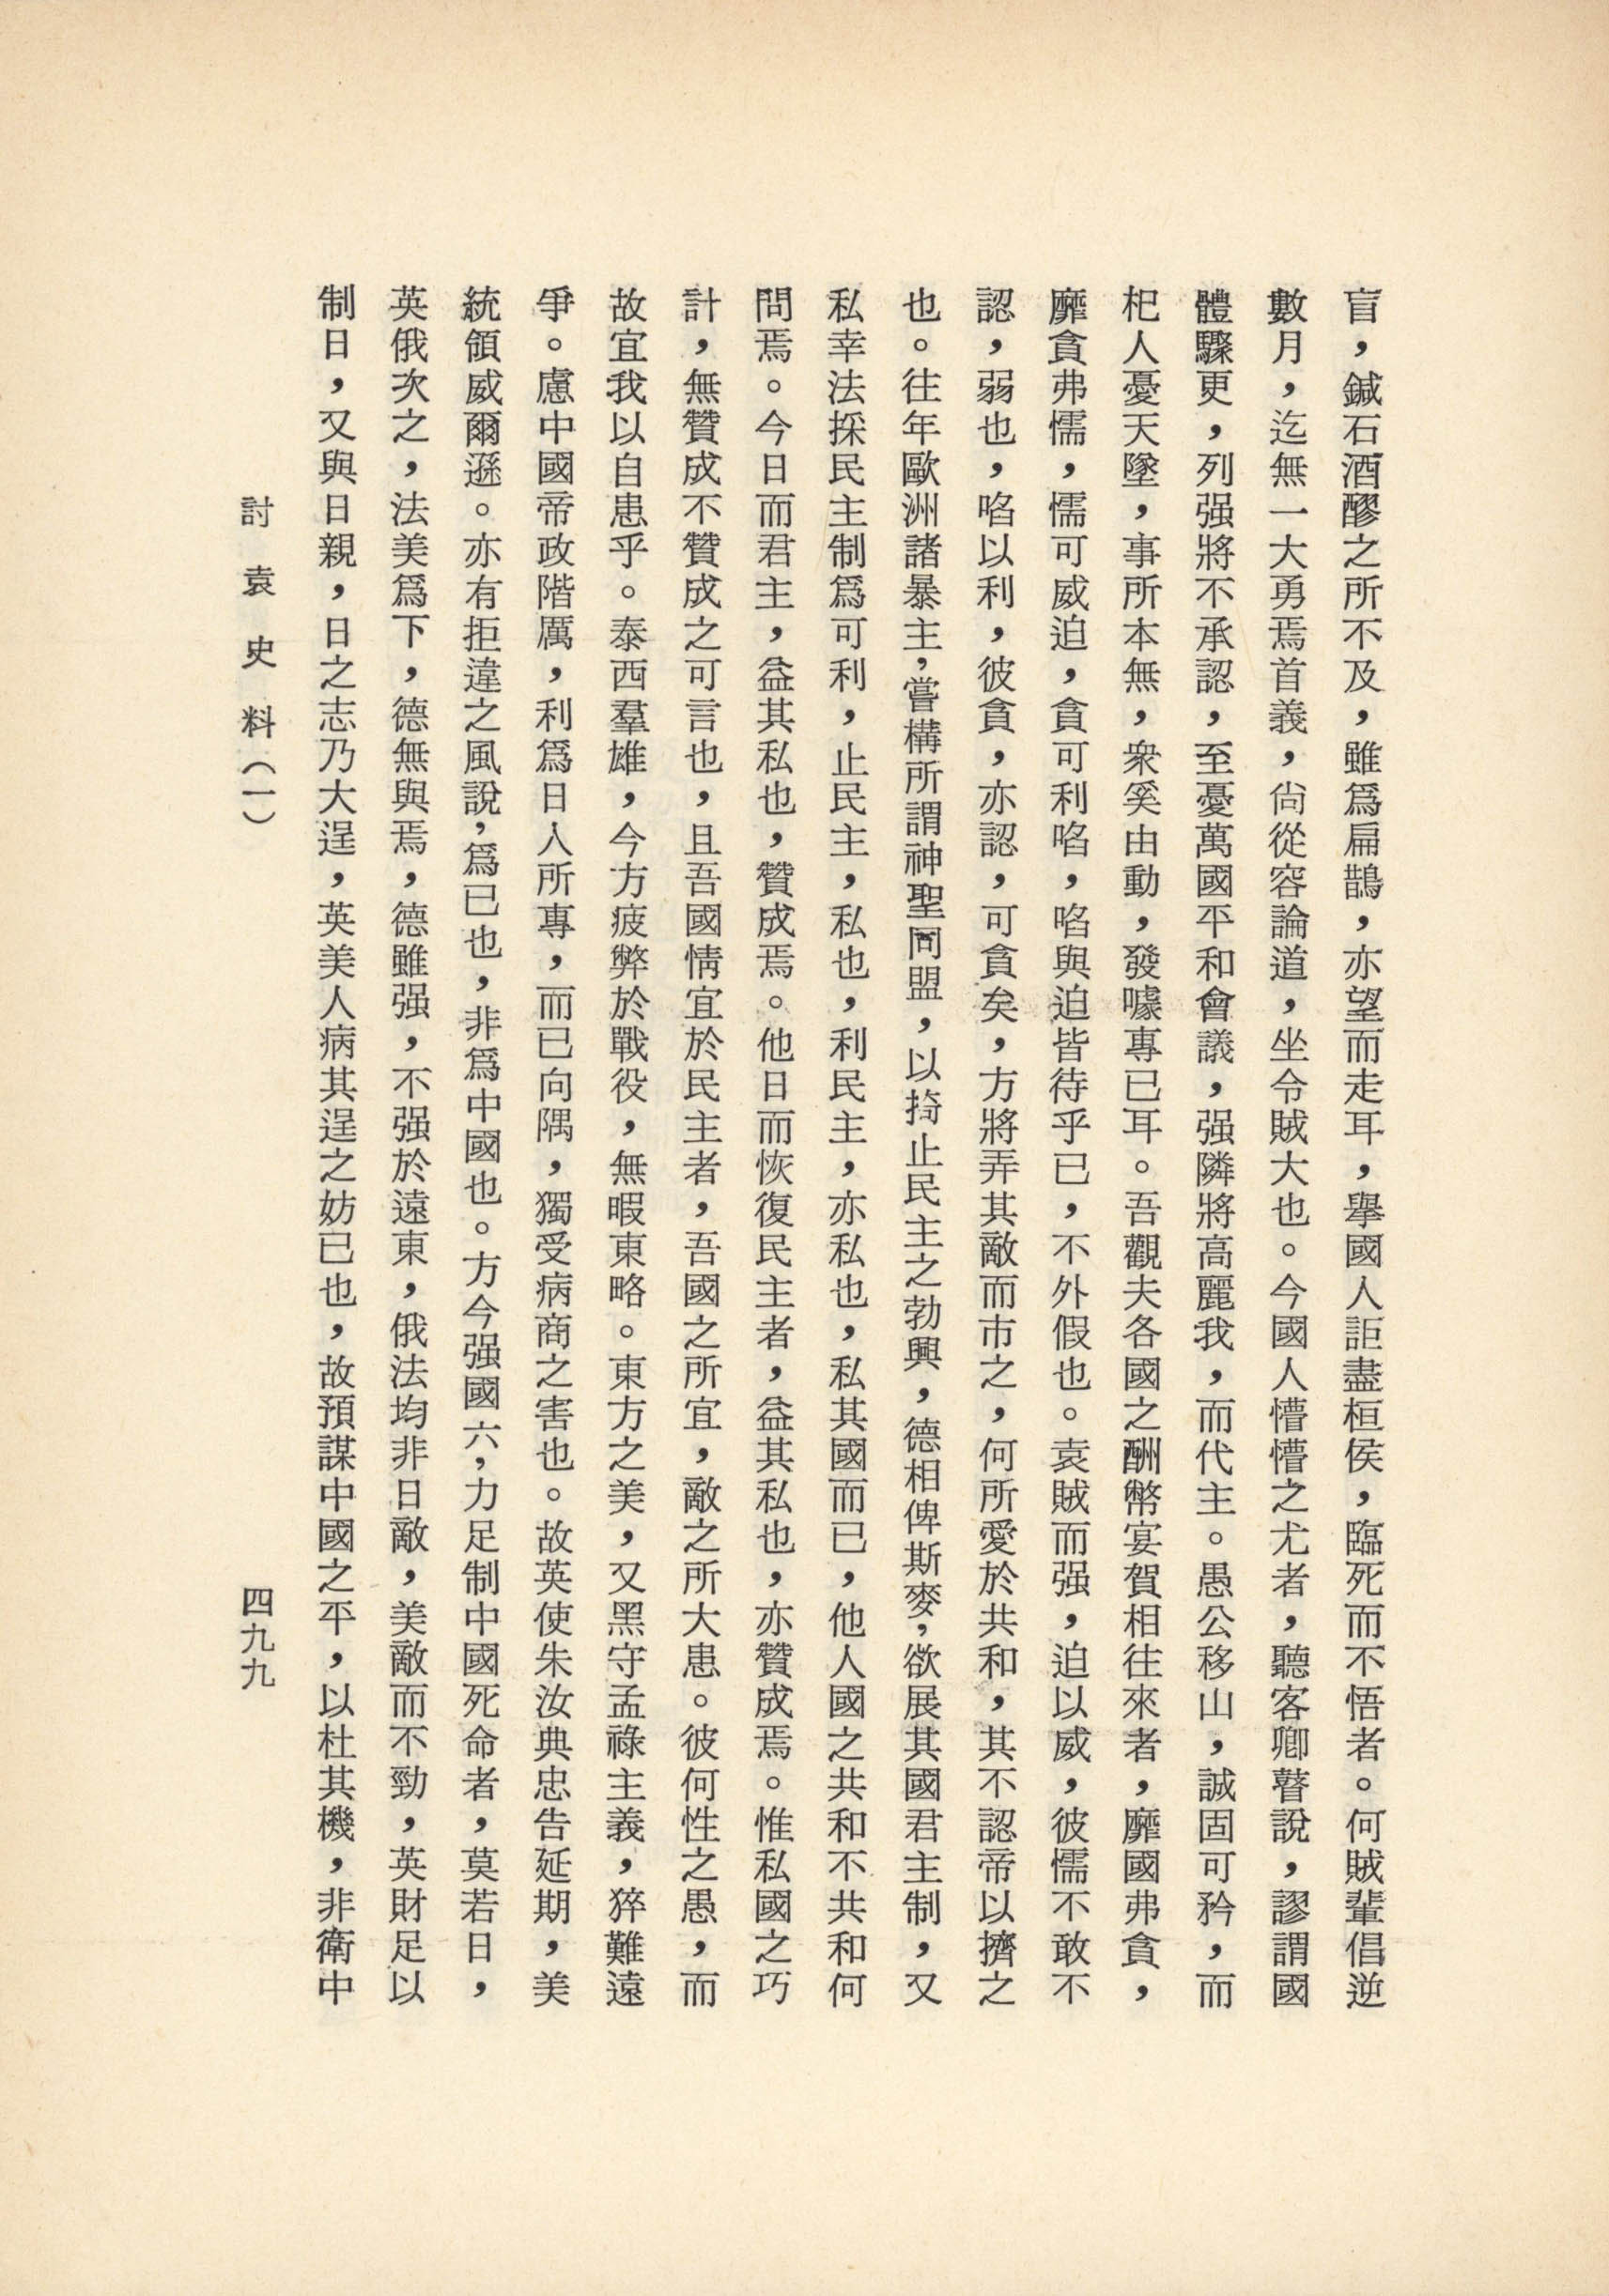 盲，鍼石酒醪之所不及，雖爲扁鵲，亦望而走耳，舉國人詎盡桓侯，臨死而不悟者。何賊輩倡逆
數月，迄無一大勇焉首義，尙從容論道，坐令賊大也。今國人懵懵之尤者，聽客卿瞽說，謬謂國
體驟更，列强將不承認，至憂萬國平和會議，强隣將高麗我，而代主。愚公移山，誠固可矜，而
杞人憂天墜，事所本無，衆奚由動，發噱專已耳。吾觀夫各國之酬幣宴賀相往來者，靡國弗貪，
靡貪弗懦，懦可威迫，貪可利啗，啗與迫皆待乎已，不外假也。袁賊而强，迫以威，彼懦不敢不
認，弱也，啗以利，彼貪，亦認，可貪矣，方將弄其敵而市之，何所愛於共和，其不認帝以擠之
也。往年歐洲諸暴主，嘗構所謂神聖同盟，以掎止民主之勃興，德相俾斯麥，欲展其國君主制，又
私幸法採民主制爲可利，止民主，私也，利民主，亦私也，私其國而已，他人國之共和不共和何
問焉。今日而君主，益其私也，贊成焉。他日而恢復民主者，益其私也，亦贊成焉。惟私國之巧
計，無贊成不贊成之可言也，且吾國情宜於民主者，吾國之所宜，敵之所大患。彼何性之愚，而
故宜我以自患乎。泰西羣雄，今方疲弊於戰役，無暇東略。東方之美，又黑守孟祿主義，猝難遠
爭。慮中國帝政階厲，利爲日人所專，而已向隅，獨受病商之害也。故英使朱汝典忠告延期，美
統領威爾遜。亦有拒違之風說，爲已也，非爲中國也。方今强國六，力足制中國死命者，莫若日，
英俄次之，法美爲下，德無與焉，德雖强，不强於遠東，俄法均非日敵，美敵而不勁，英財足以
制日，又與日親，日之志乃大逞，英美人病其逞之妨已也，故預謀中國之平，以杜其機，非衛中
討袁史料（一）
四九九